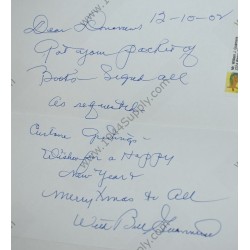 Dear Donovans 12-10-02
Got your packet of
Books Signed all
as requested
Enclose Greetings -
Wishes for a Happy
New Year &
Merry Xmas to All
Wild Bill Guarnere
www.1944Supply.com